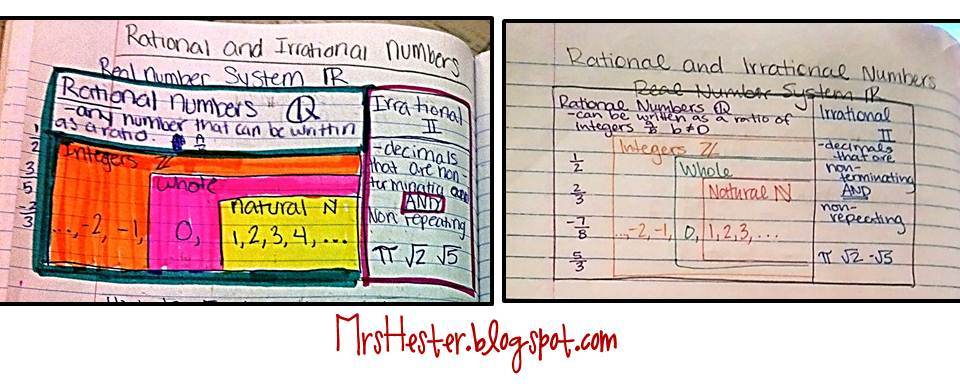 Rational and Irrational Numbers
Real Number System ℝ
Rational Numbers ℚ
-any number that can be written
as a ratio.
Integers ℤ
Whole
Natural ℕ
..., -2, -1,
0,
1, 2, 3, 4, ...
Irrational
𝕀
-decimals
that are non-
terminating
AND
Non repeating
π √2 √5
Rational and Irrational Numbers
Real Number System ℝ
Rational Numbers ℚ
-can be written as a ratio of
integers a/b b≠0
1/2
2/3
-7/8
5/3
Integers ℤ
Whole
Natural ℕ
...,-2,-1,
0,
1,2,3,...
Irrational
𝕀
-decimals
that are
non-
terminating
AND
non-
repeating
π √2 -√5
MrsHester.blogspot.com